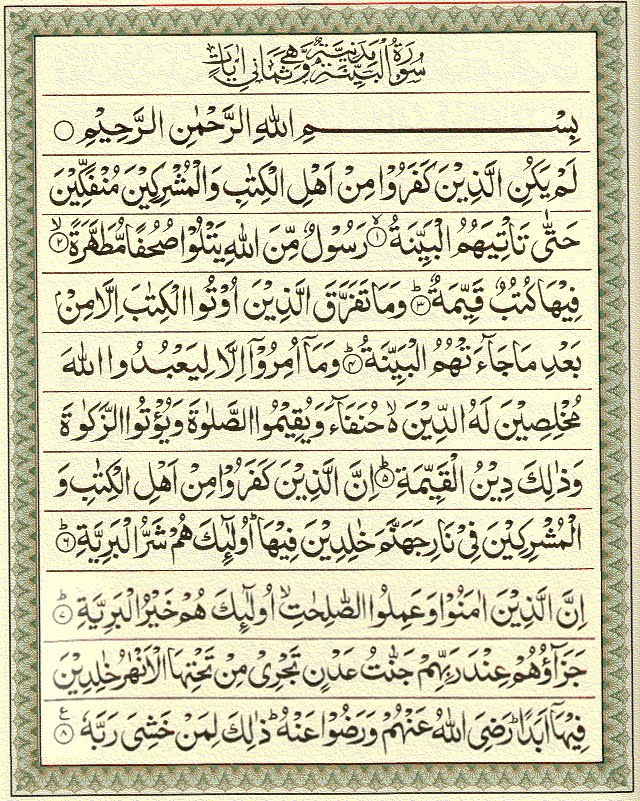 سُوْرَةُ الْبَيِّنَةِ مَدَنِيَّةٌ وَّهِيَ ثَمَانِيْ اٰيَاتٍ
بِسْــــــــــــــــــمِ اللهِ الرَّحْمٰنِ الرَّحِيْمِ ○
لَمْ يَكُنِ الَّذِيْنَ كَفَرُوْا مِنْ اَهْلِ الْكِتٰبِ وَالْمُشْرِكِيْنَ مُنْفَكِّيْنَ
حَتّٰى تَاْتِيَهُمُ الْبَيِّنَةُ ۙ﴿۱﴾ رَسُوْلٌ مِّنَ اللهِ يَتْلُوْا صُحُفًا مُّطَهَّرَةً ۙ﴿۲﴾
فِيْهَا كُتُبٌ قَيِّمَةٌ ؕ﴿۳﴾ وَمَا تَفَرَّقَ الَّذِيْنَ اُوْتُوا الْكِتٰبَ اِلَّا مِنْۢ
بَعْدِ مَا جَآءَتْهُمُ الْبَيِّنَةُ ؕ﴿۴﴾ وَمَآ اُمِرُوْۤا اِلَّا لِيَعْبُدُوا اللهَ
مُخْلِصِيْنَ لَهُ الدِّيْنَ ۙ۬ حُنَفَآءَ وَيُقِيْمُوا الصَّلٰوةَ وَيُؤْتُوا الزَّكٰوةَ
وَذٰلِكَ دِيْنُ الْقَيِّمَةِ ؕ﴿۵﴾ اِنَّ الَّذِيْنَ كَفَرُوْا مِنْ اَهْلِ الْكِتٰبِ وَ
الْمُشْرِكِيْنَ فِيْ نَارِ جَهَنَّمَ خٰلِدِيْنَ فِيْهَا ؕ اُولٰٓئِكَ هُمْ شَرُّ الْبَرِيَّةِ ؕ﴿۶﴾
اِنَّ الَّذِيْنَ اٰمَنُوْا وَعَمِلُوا الصّٰلِحٰتِ ۙ اُولٰٓئِكَ هُمْ خَيْرُ الْبَرِيَّةِ ؕ﴿۷﴾
جَزَآؤُهُمْ عِنْدَ رَبِّهِمْ جَنّٰتُ عَدْنٍ تَجْرِيْ مِنْ تَحْتِهَا الْاَنْهٰرُ خٰلِدِيْنَ
فِيْهَآ اَبَدًا ؕ رَضِيَ اللهُ عَنْهُمْ وَرَضُوْا عَنْهُ ؕ ذٰلِكَ لِمَنْ خَشِيَ رَبَّهٗ ﴿۸﴾ ع